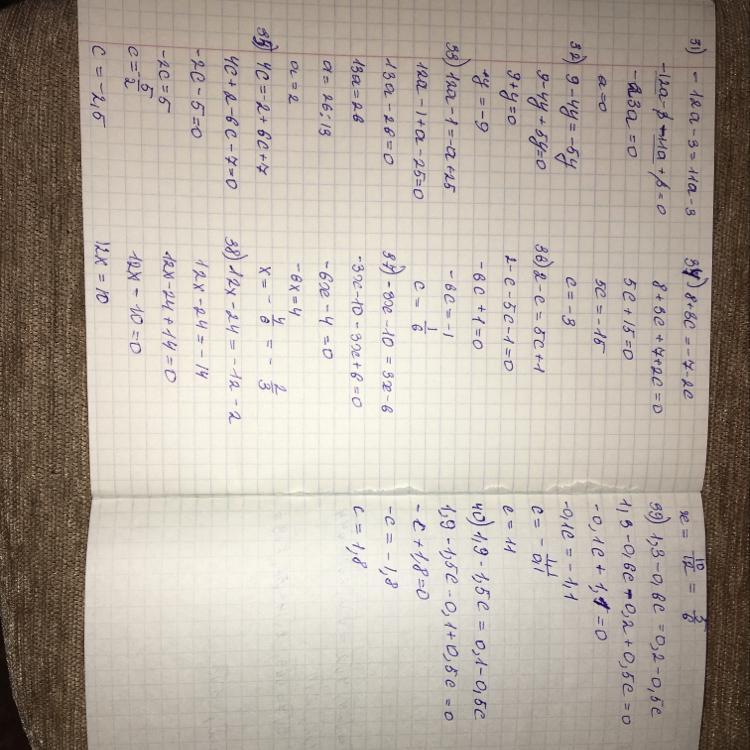 31) -12a-3=11a-3
-12a-3-11a+3=0
-23a=0
a=0
32) 9-4y=-5y
9-4y+5y=0
9+y=0
+y=-9
33) 12a-1=-a+25
12a-1+a-25=0
13a-26=0
13a=26
a=26:13
a=2
35) 4c=2+6c+7
4c+2-6c-7=0
-2c-5=0
-2c=5
c=-5/2
c=-2,5
34) 8+3c=-7-2c
8+3c+7+2c=0
5c+15=0
5c=-15
c=-3
36) 2-c=5c+1
2-c-5c-1=0
-6c+1=0
-6c=-1
c=1/6
37) -3x-10=3x-6
-3x-10-3x+6=0
-6x-4=0
-6x=4
x=-4/6=-2/3
38) 12x-24=-12-2
12x-24=-14
12x-24+14=0
12x-10=0
12x=10
x=10/12=5/6
39) 1,3-0,6c=0,2-0,5c
1,3-0,6c-0,2+0,5c=0
-0,1c+1,1=0
-0,1c=-1,1
c=-1,1/0,1
c=11
40) 1,9-1,5c=0,1-0,5c
1,9-1,5c-0,1+0,5c=0
-c+1,8=0
-c=-1,8
c=1,8